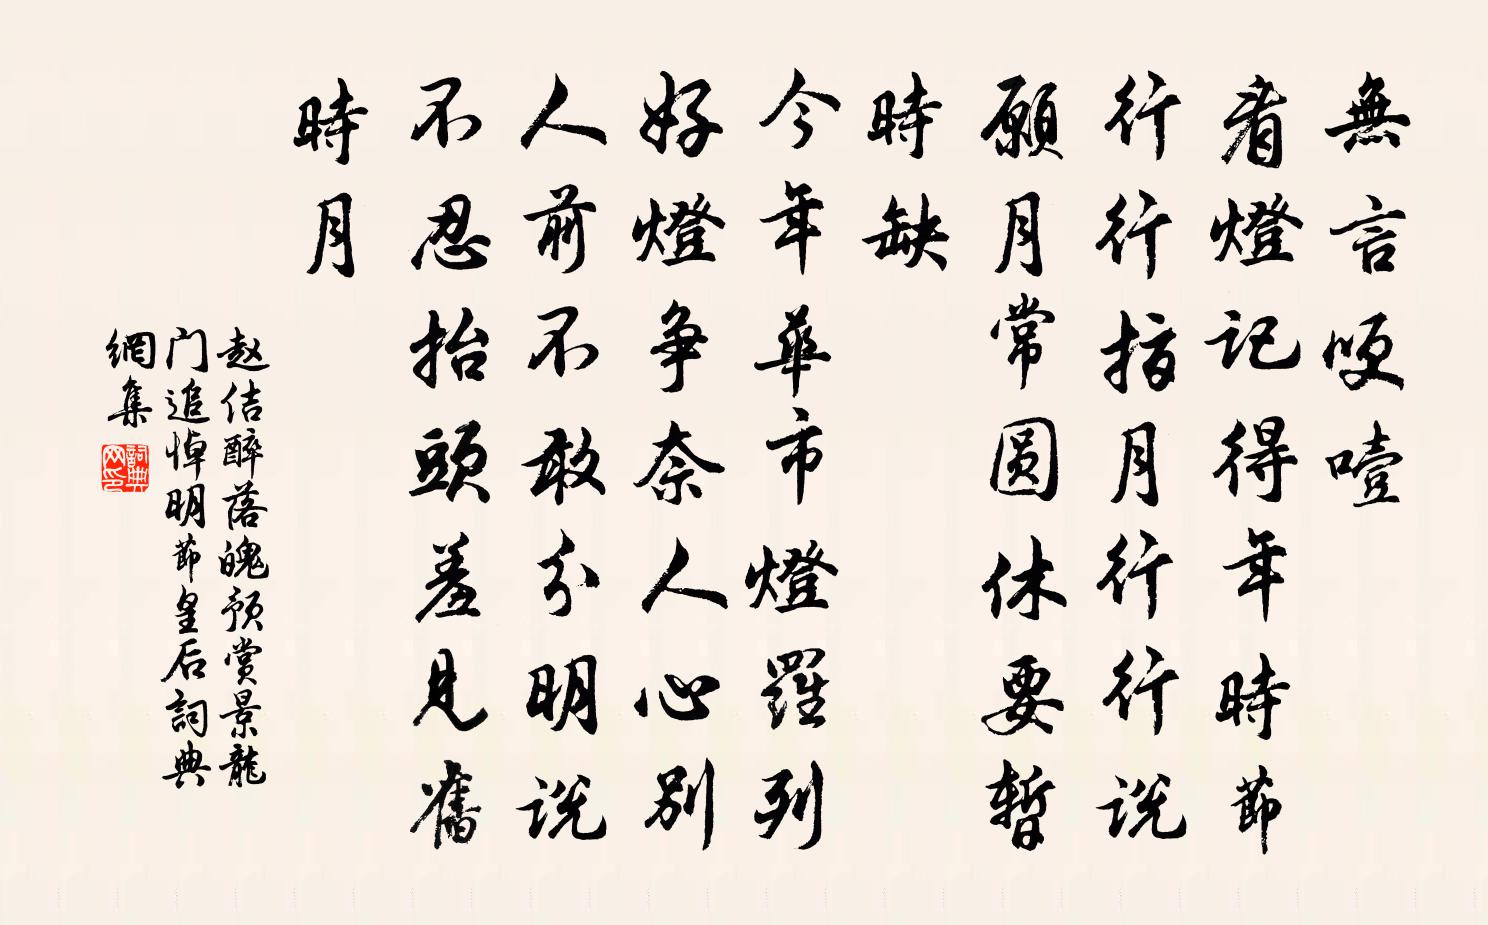 無言哽噎
看燈記得年時節
行行指月行行説
願月常圆休要暫
時缺
今年華市燈羅列
好燈争奈人心别
人前不敢分明説
不忍抬頭羞見舊
時月
赵佶醉落魄预赏景龍
门追悼明節皇后詞典
網集
詞典网印